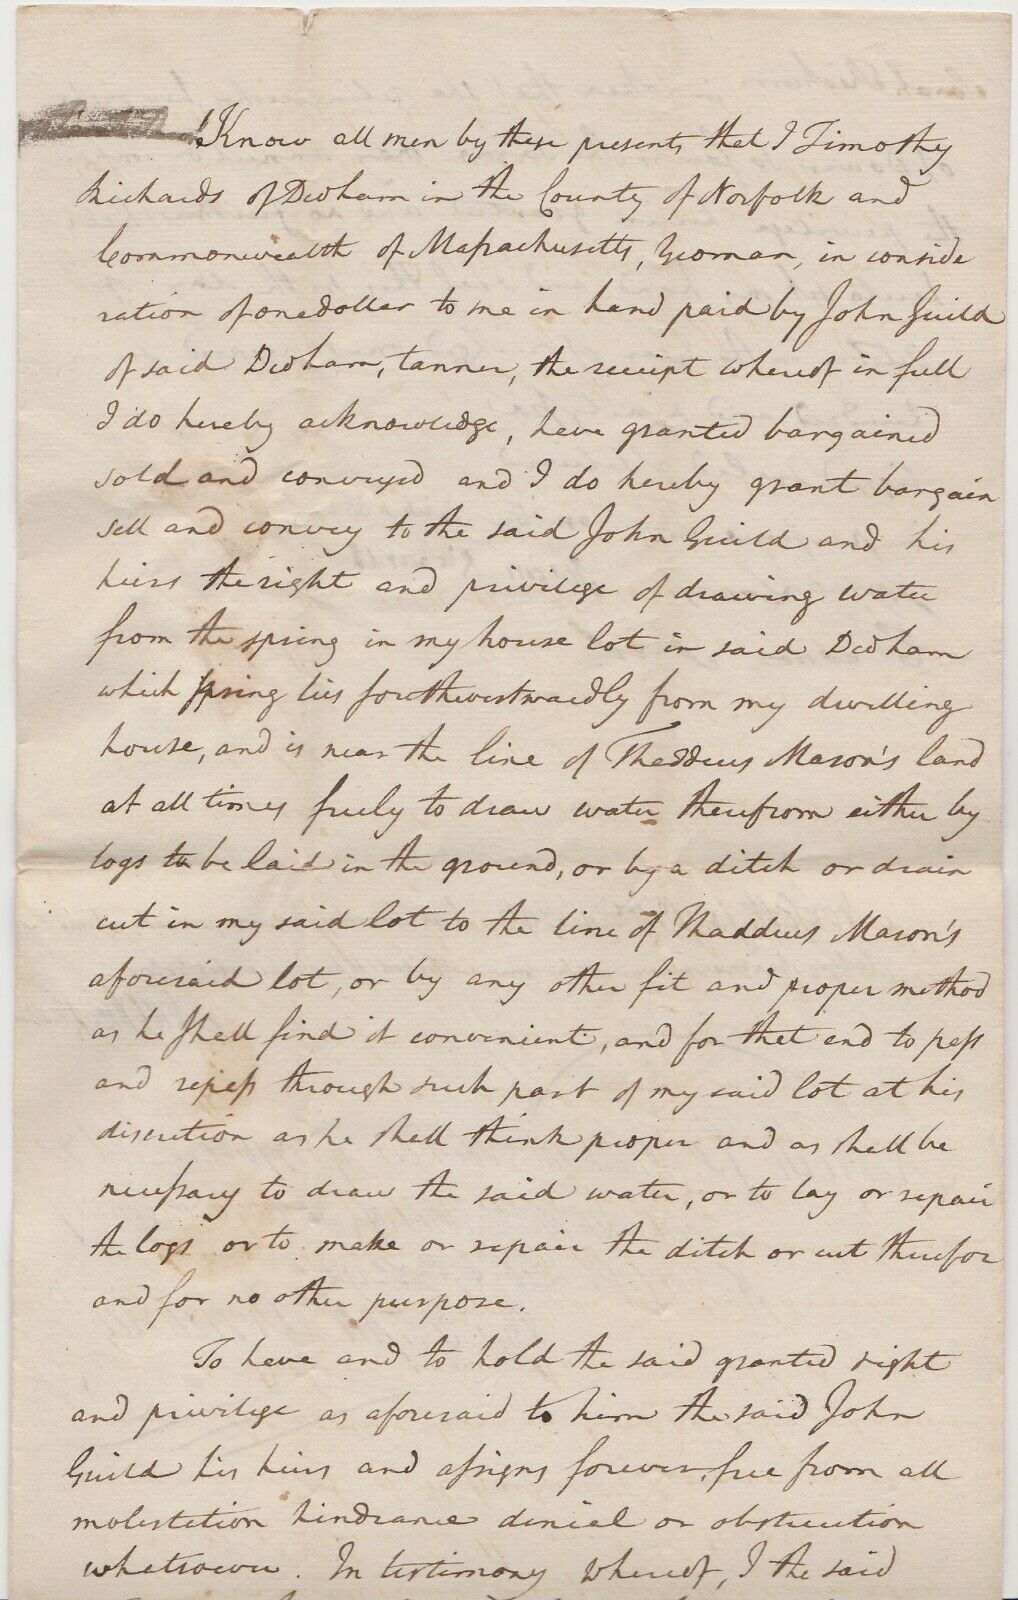 Know all men by these presents that I Timothy
Richards of Dedham in the County of Norfolk and
Commonwealth of Massachusetts, Yeoman, in conside
ration of one dollar to me in hand paid by John Guild
of said Dedham, tanner, the receipt whereof in full
I do hereby acknowledge, have granted bargained
sold and conveyed and I do hereby grant bargain
sell and convey to the said John Guild and his
heirs the right and privilege of drawing water
from the spring in my house lot in said Dedham
which spring lies southwestwardly from my dwelling
house, and is near the line of Thaddeus Mason's land
at all times freely to draw water therefrom either by
logs to be laid in the ground, or by a ditch or drain
cut in my said lot to the line of Thaddeus Mason's
aforesaid lot, or by any other fit and proper method
as he shall find it convenient, and for that end to pass
and repass through such part of my said lot at his
discretion as he shall think proper and as shall be
necessary to draw the said water, or to lay or repair
the logs or to make or repair the ditch or cut therefor
and for no other purpose.
To have and to hold the said granted right
and privilege as aforesaid to him the said John
Guild his heirs and assigns forever, free from all
molestation hindrance denial or obstruction
whatsoever. In testimony whereof, I the said